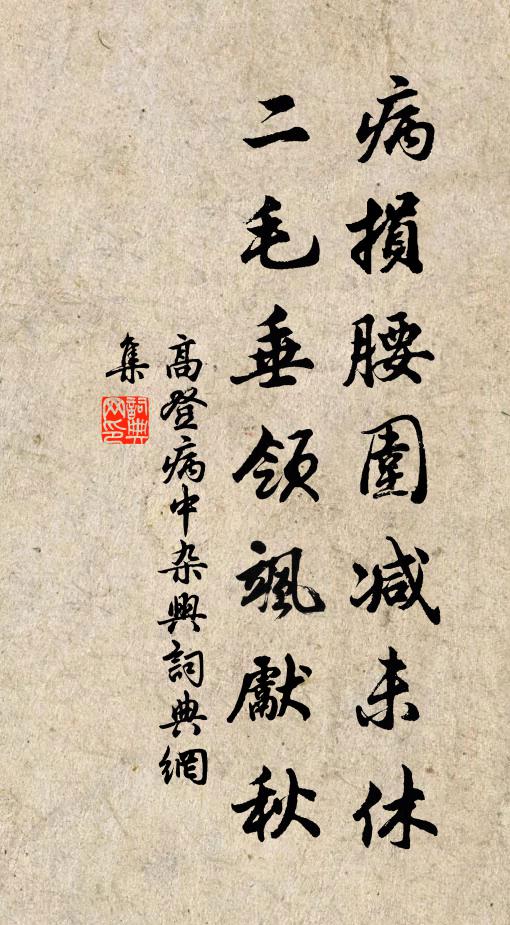 病損腰圍減未休
二毛垂領颯獻秋
高登病中杂興詞典網
集
詞典
网印